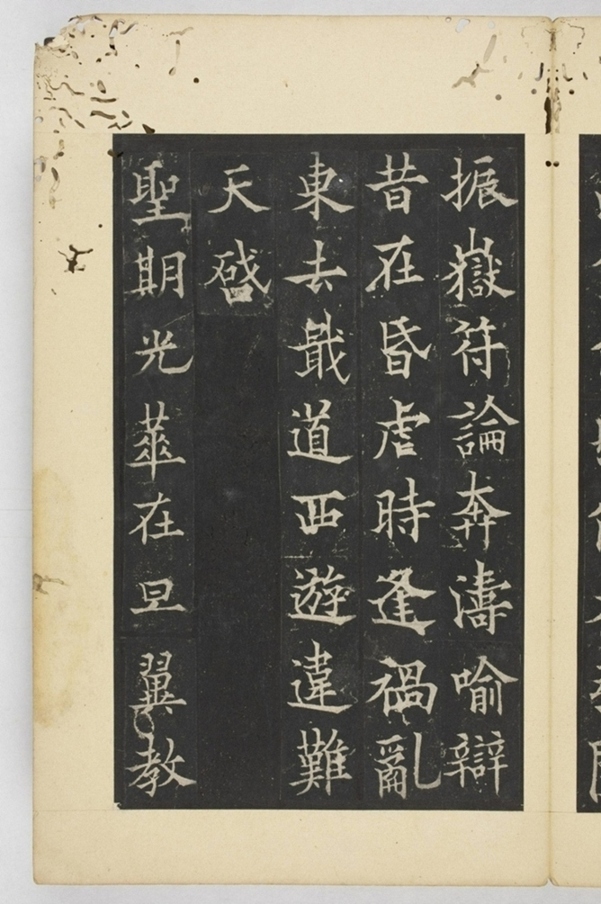 振嶽符論奔濤喻辯
昔在昏虐時逢禍亂
東去戢道西遊違難
天啟
聖期光華在旦翼教